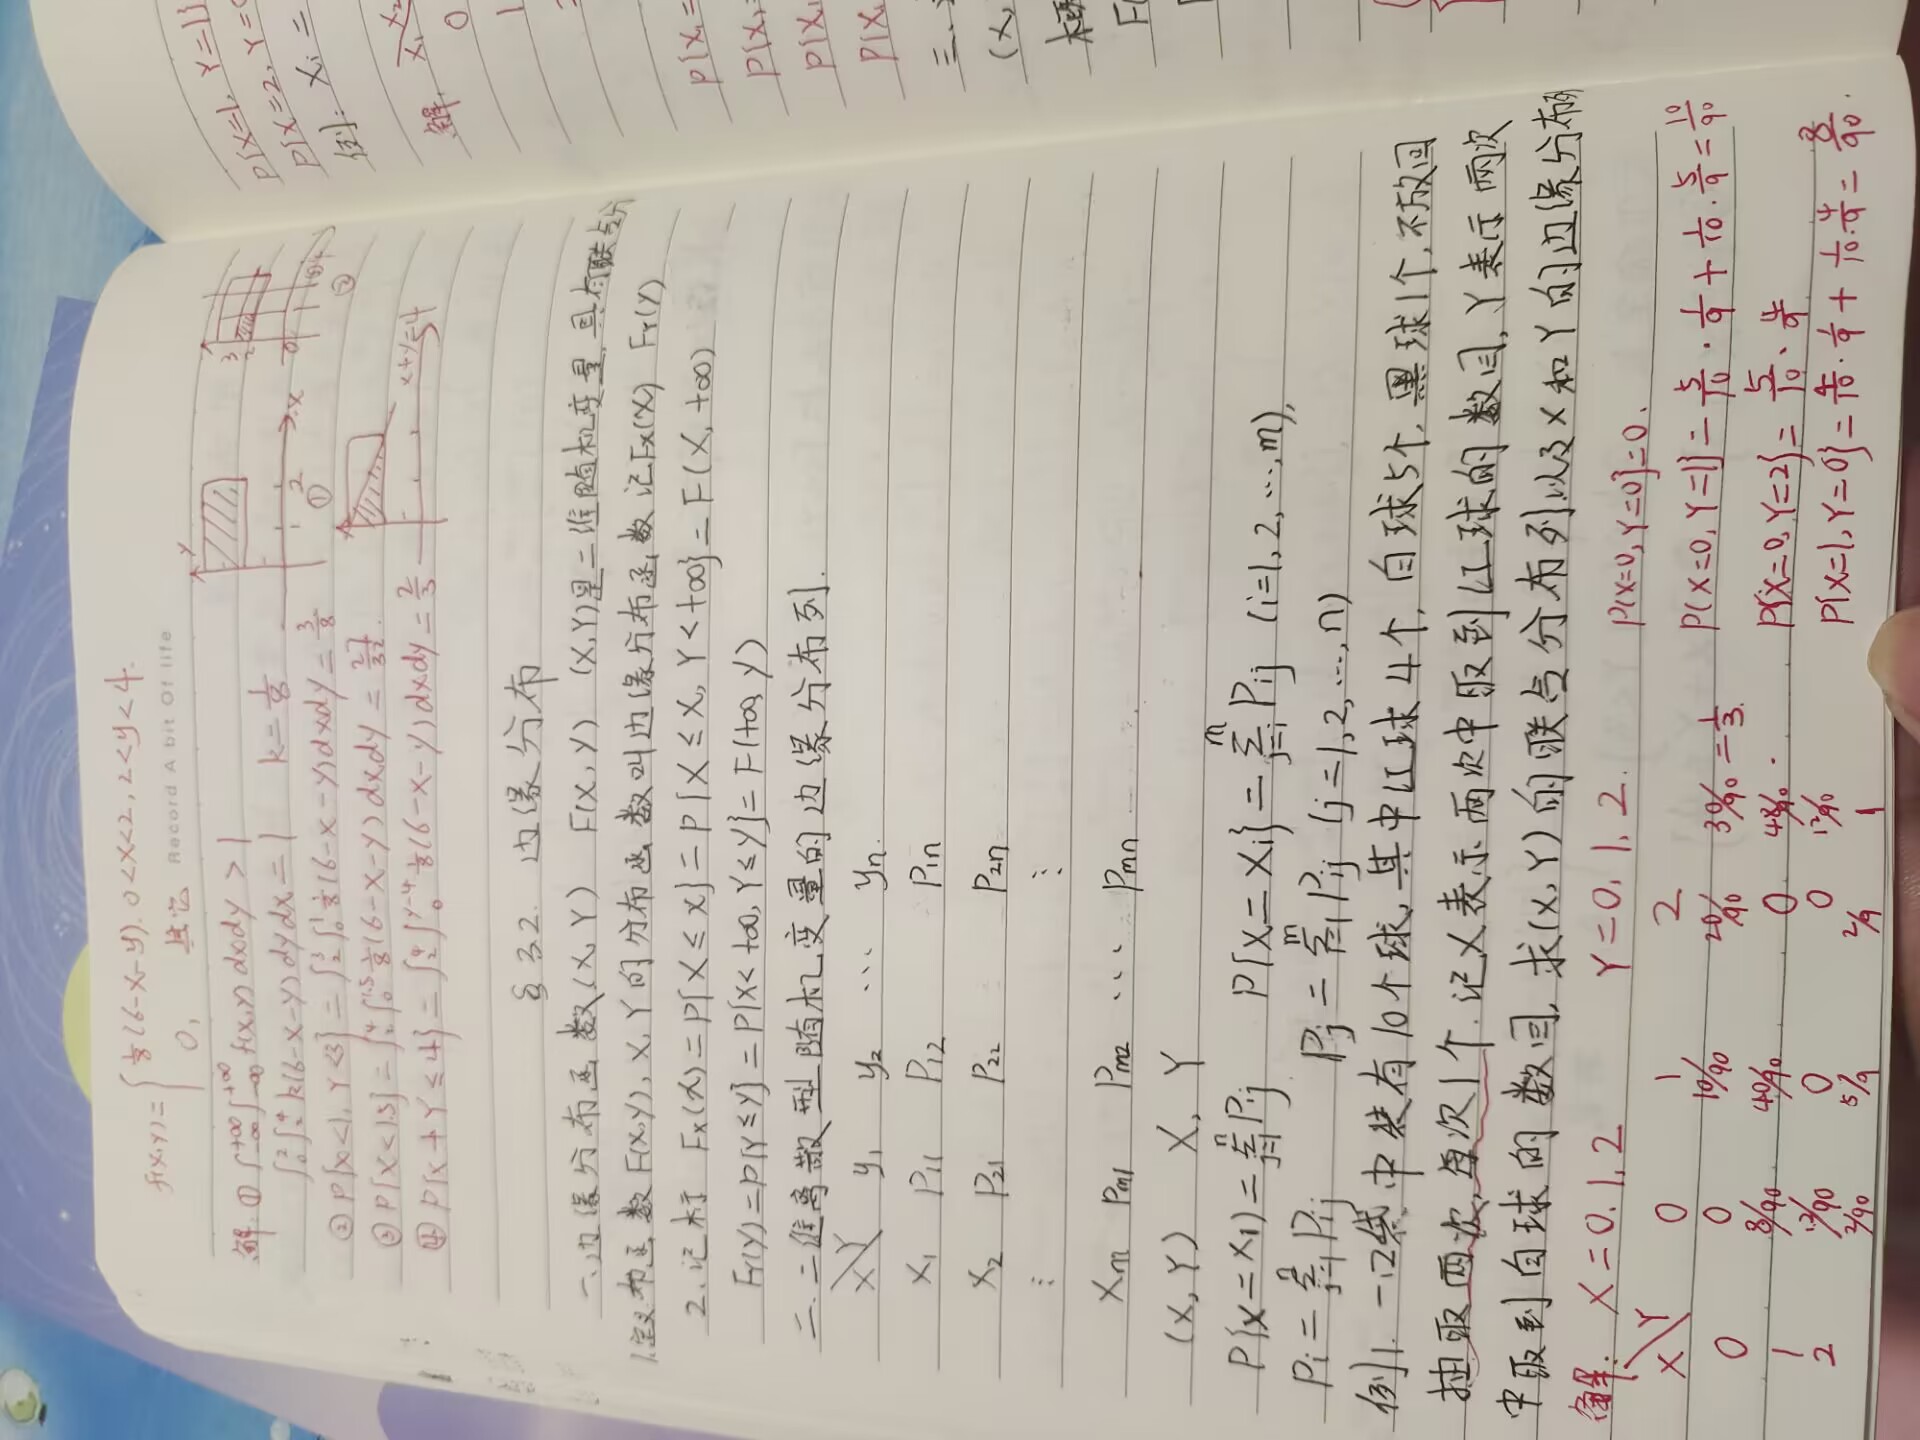 f(x,y)={ 1/8(6-x-y). 0<x<2, 2<y<4.
0, 其它
Record A bit Of life
解:① ∫_{-∞}^{+∞}∫_{-∞}^{+∞} f(x,y) dxdy > 1
∫_0^2∫_2^4 k(6-x-y)dydx=1 k=1/8
② P{X<1,Y<3}=∫_2^3∫_0^1 1/8(6-x-y)dxdy=3/8
③ P{X<1.5}=∫_2^4∫_0^{1.5} 1/8(6-x-y)dxdy=27/32.
④ P{X+Y≤4}=∫_2^4∫_0^{y-4} 1/8(6-x-y)dxdy=2/3
y
2
>x
①
3
2
0
②
x+y=4
§3.2. 边缘分布
一、边缘分布函数(X,Y) F(x,y) (X,Y)是二维随机变量,具有联合分
1.定义.布函数F(x,y),X,Y的分布函数叫边缘分布函数记Fx(x) FY(y)
2.记术 Fx(x)=P{X≤x}=P{X≤x,Y<+∞}=F(x,+∞)
FY(y)=P{Y≤y}=P{X<+∞,Y≤y}=F(+∞,y)
二.二维离散型随机变量的边缘分布列.
X\Y y1 y2 ... yn.
X1 P11 P12 P1n
X2 P21 P22 P2n
⋮ ⋮
Xm Pm1 Pm2 ... Pmn
(X,Y) X,Y
P{X=X1}=∑_{j=1}^n P1j P{X=Xi}=∑_{j=1}^n Pij (i=1,2,...,m),
Pi=∑_{j=1}^n Pij Pj=∑_{i=1}^m Pij (j=1,2,...,n)
例1.一口袋中装有10个球,其中红球4个,白球5个,黑球1个,不放回
抽取两次,每次1个.记X表示两次中取到红球的数目,Y表示两次
中取到白球的数目,求(X,Y)的联合分布列以及X和Y的边缘分布列
解: X=0,1,2 Y=0,1,2. P{X=0,Y=0}=0.
X\Y 0 1 2
0 0 10/90 20/90 30/90=1/3. P{X=0,Y=1}=5/10·1/9+1/10·5/9=10/90
1 8/90 40/90 0 48/90. P{X=0,Y=2}=5/10·4/9
2 12/90 0 0 12/90 P{X=1,Y=0}=4/10·1/9+1/10·4/9=8/90.
2/90 5/9 2/9 1
P{X=1,Y=1}
P{X=2,Y=0
例: Xi=
解.
X1\X2
0
1
P{X1=
P{X1
P{X1
P{X1
三、
(X,
概
F(